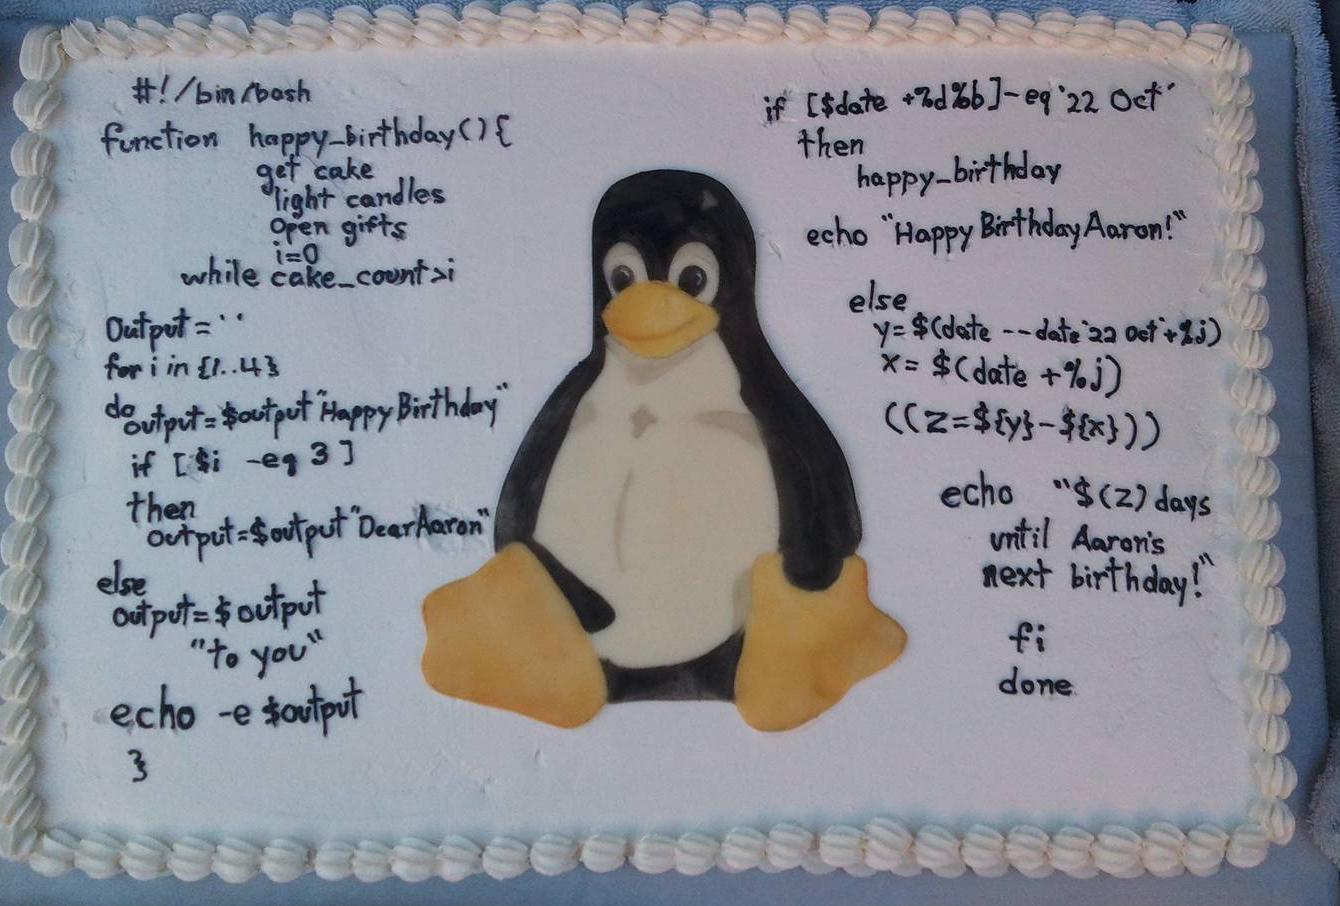 #!/bin/bash
function happy_birthday(){
get cake
light candles
open gifts
i=0
while cake_count>i
Output=''
for i in {1..4}
do
output=$output"Happy Birthday"
if [$i -eq 3]
then
output=$output"Dear Aaron"
else
output=$output
"to you"
echo -e $output
}
if [$date +%d%b]-eq '22 Oct'
then
happy_birthday
echo "Happy Birthday Aaron!"
else
y=$(date --date '22 Oct' +%j)
x= $(date +%j)
((z=${y}-${x}))
echo "$(z) days
until Aaron's
next birthday!"
fi
done